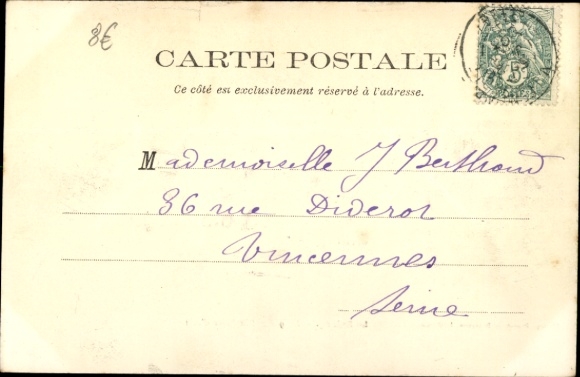 8€
CARTE POSTALE
Ce côté est exclusivement réservé à l'adresse.
Mademoiselle J Berthond
36 rue Diderot
Vincennes
Seine